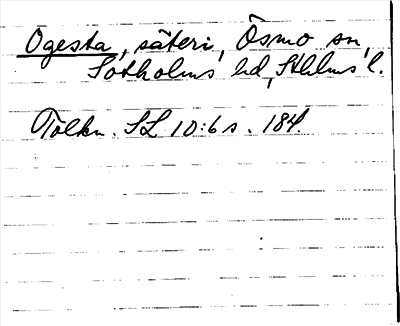 Ogesta, säteri, Ösmo sn,
Sotholms hd, Sthlms l.
Tolkn. SL 10:6 s. 184.